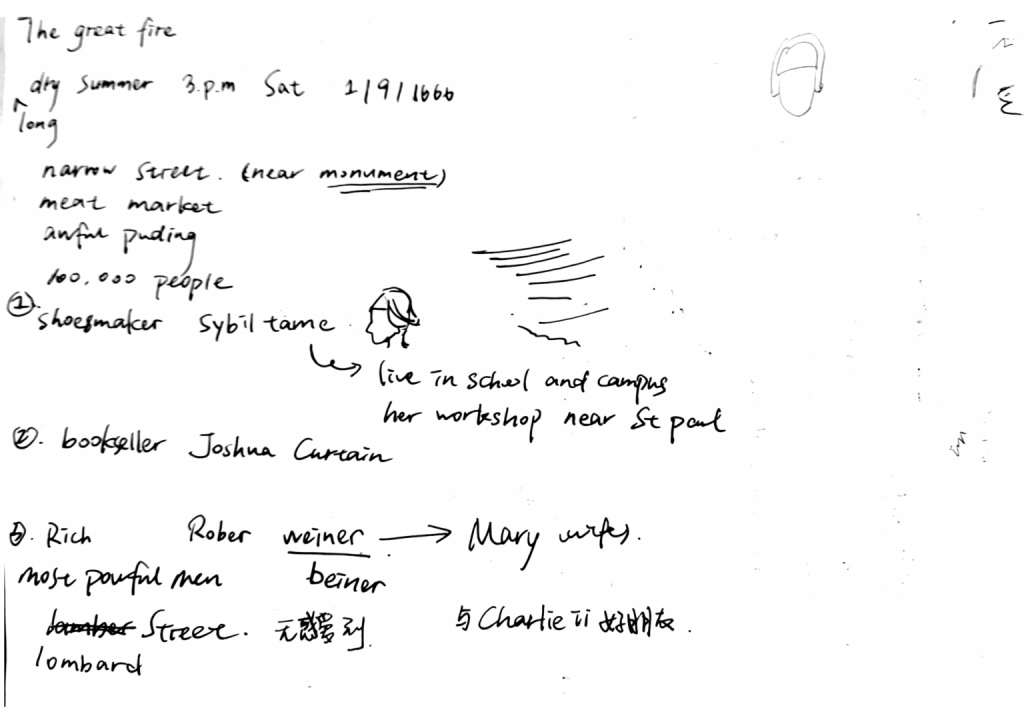 The great fire
dry summer 3.p.m Sat 1/9/1666
^ long
narrow street. (near monument)
meat market
awful puding
100,000 people
①. Shoesmaker Sybil tame
live in school and campus
her workshop near St paul
②. bookseller Joshua Curtain
③. Rich Rober weiner → Mary wifes.
most powful men beiner
Street. 无 到 与Charlie ii 好朋友.
lombard